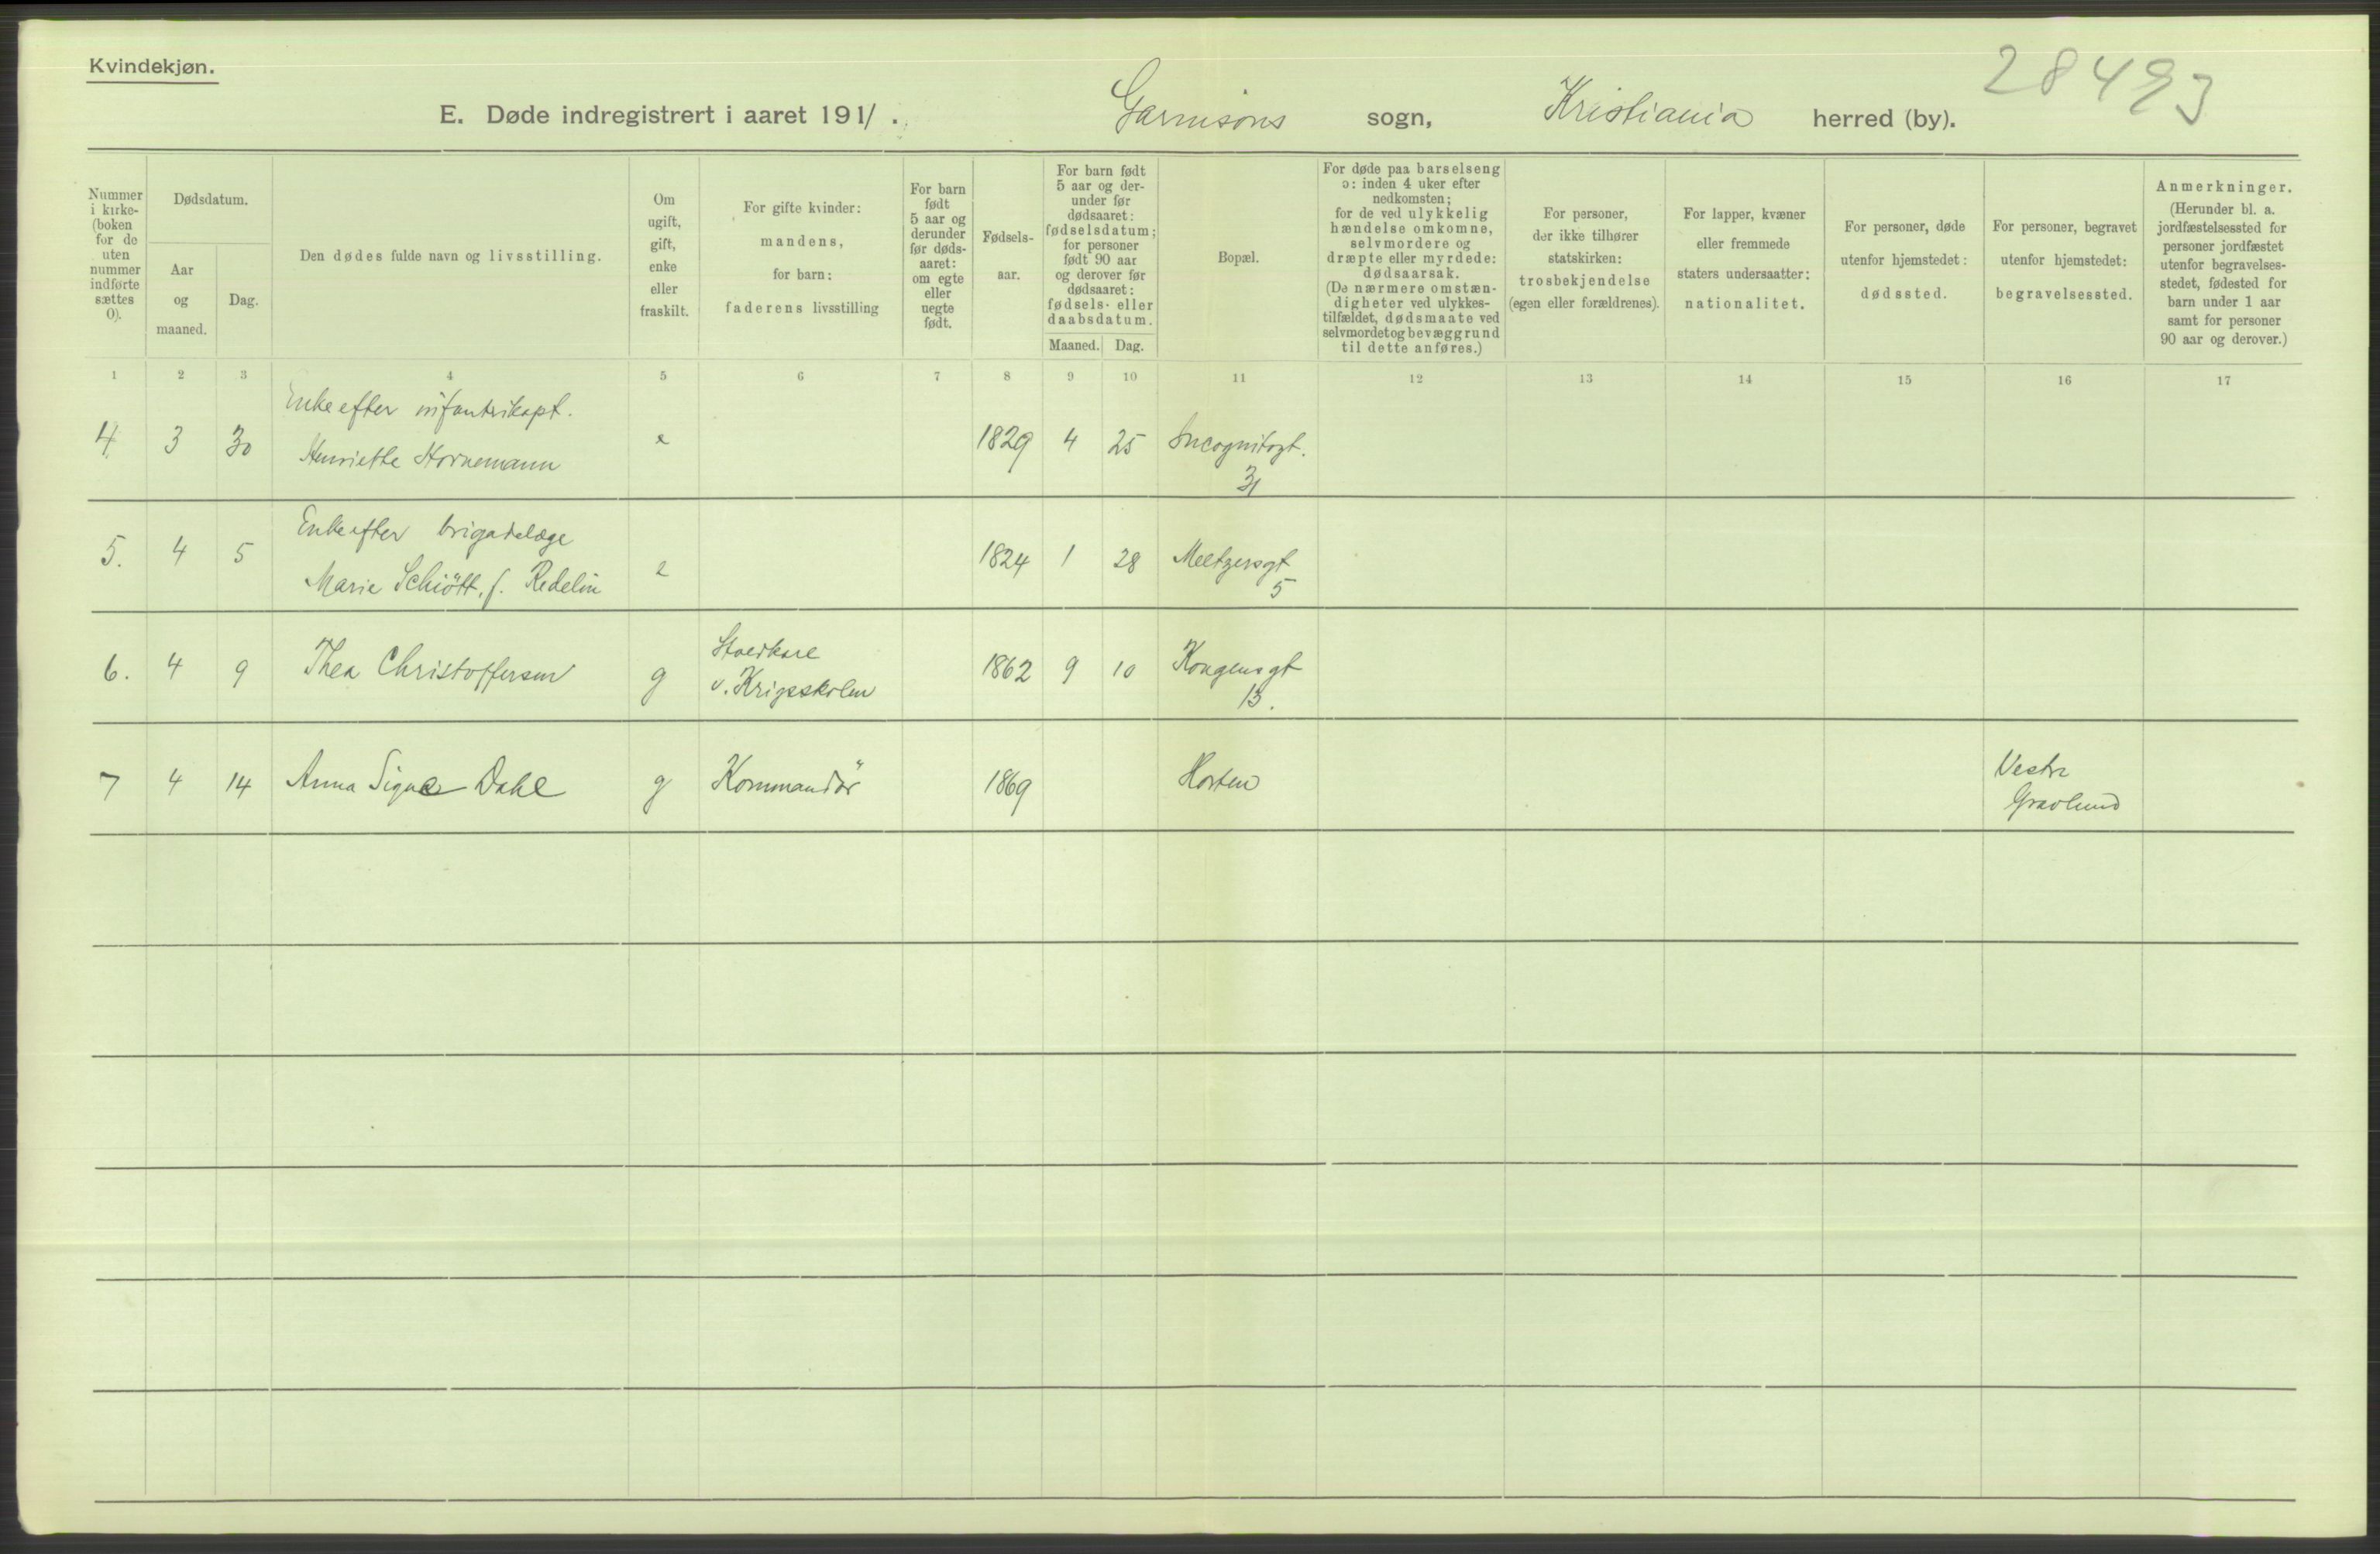 Kvindekjøn.
28493
E. Døde indregistrert i aaret 1911. Garnisons sogn, Kristiania herred (by).
Nummer i kirke- (boken for de uten nummer indførte sættes 0).
Dødsdatum.
Aar og maaned.
Dag.
Den dødes fulde navn og livsstilling.
Om ugift, gift, enke eller fraskilt.
For gifte kvinder: mandens, for barn: faderens livsstilling
For barn født 5 aar og derunder før døds- aaret: om egte eller uegte født.
Fødsels- aar.
For barn født 5 aar og der- under før dødsaaret: fødselsdatum; for personer født 90 aar og derover før dødsaaret: fødsels- eller daabsdatum.
Maaned. Dag.
Bopæl.
For døde paa barselseng ɔ: inden 4 uker efter nedkomsten; for de ved ulykkelig hændelse omkomne, selvmordere og dræpte eller myrdede: dødsaarsak. (De nærmere omstæn- digheter ved ulykkes- tilfældet, dødsmaate ved selvmordet og bevæggrund til dette anføres.)
For personer, der ikke tilhører statskirken: trosbekjendelse (egen eller forældrenes).
For lapper, kvæner eller fremmede staters undersaatter: nationalitet.
For personer, døde utenfor hjemstedet: dødssted.
For personer, begravet utenfor hjemstedet: begravelsessted.
Anmerkninger. (Herunder bl. a. jordfæstelsessted for personer jordfæstet utenfor begravelses- stedet, fødested for barn under 1 aar samt for personer 90 aar og derover.)
1 2 3 4 5 6 7 8 9 10 11 12 13 14 15 16 17
Enke efter infanterikapt.
4 3 30 Henriette Hornemann e 1829 4 25 Incognitogt.
31
Enke efter brigadelæge
5. 4 5 Marie Schiött, f. Redelin e 1824 1 28 Meltzersgt
5
Staldkarl
6. 4 9 Thea Christoffersen g v. Krigsskolen 1862 9 10 Kongensgt
13.
7 4 14 Anna Signe Dahl g Kommandör 1869 Horten Vestre
Gravlund